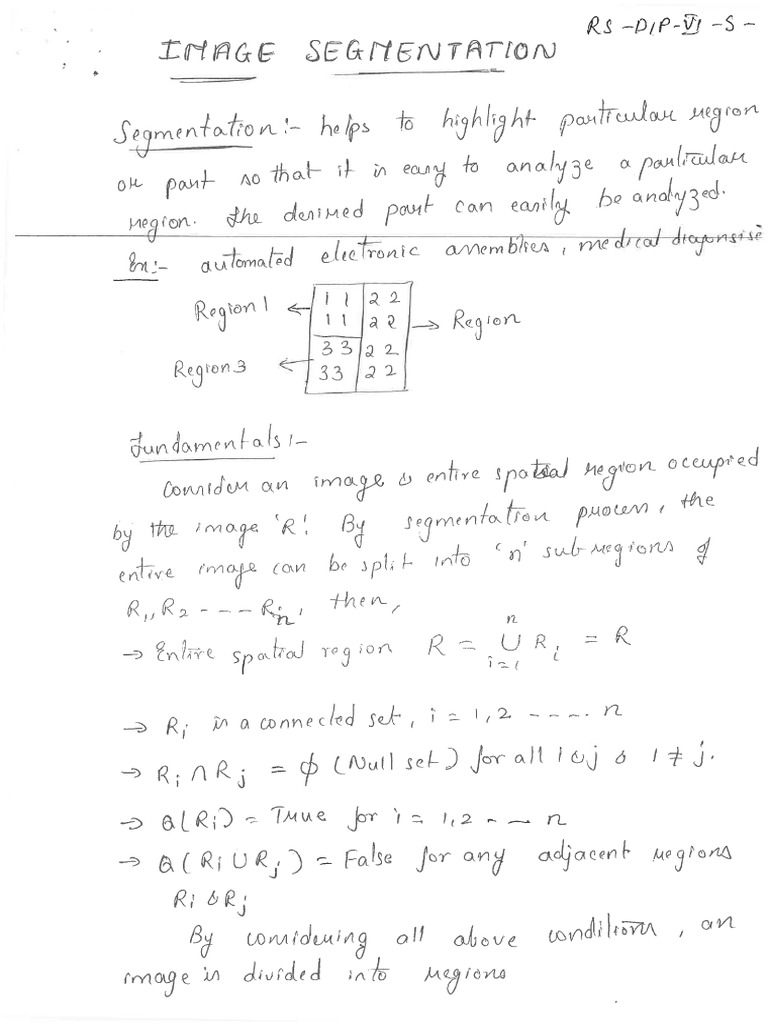 RS -DIP-VI -S -
IMAGE SEGMENTATION
Segmentation:- helps to highlight particular region
or part so that it is easy to analyze a particular
region. The desired part can easily be analyzed.
Ex:- automated electronic assemblies, medical diagonsise
Region 1 ← 1 1 2 2
1 1 2 2 → Region
3 3 2 2
Region 3 ← 3 3 2 2
Fundamentals:-
Consider an image & entire spatial region occupied
by the image 'R'. By segmentation process, the
entire image can be split into 'n' sub regions of
R1, R2 ---- Rn, then,
→ Entire spatial region R = ⋃ⁿᵢ₌₁ Rᵢ = R
→ Ri is a connected set, i = 1, 2 ----- n
→ Ri ∩ Rj = ϕ (Null set) for all i & j & i ≠ j.
→ Q(Ri) = True for i = 1, 2 - -- n
→ Q(Ri ∪ Rj) = False for any adjacent regions
Ri & Rj
By considering all above conditions, an
image is divided into regions